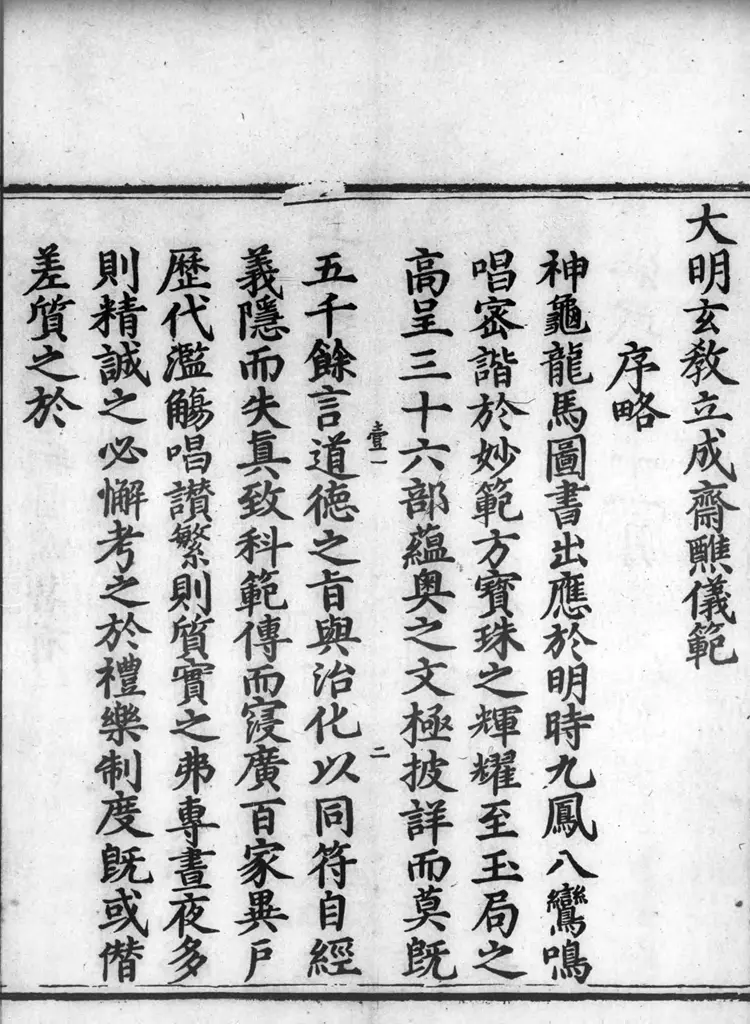 大明玄教立成齋醮儀範
序略
神龜龍馬圖書出應於明時九鳳八鸞鳴
唱密諧於妙範方寶珠之輝耀至玉局之
高呈三十六部蘊奥之文極披詳而莫既
壹一
二
五千餘言道德之旨與治化以同符自經
義隱而失真致科範傳而寖廣百家異戶
歷代濫觴唱讃繁則質實之弗專晝夜多
則精誠之必懈考之於禮樂制度既或僭
差質之於